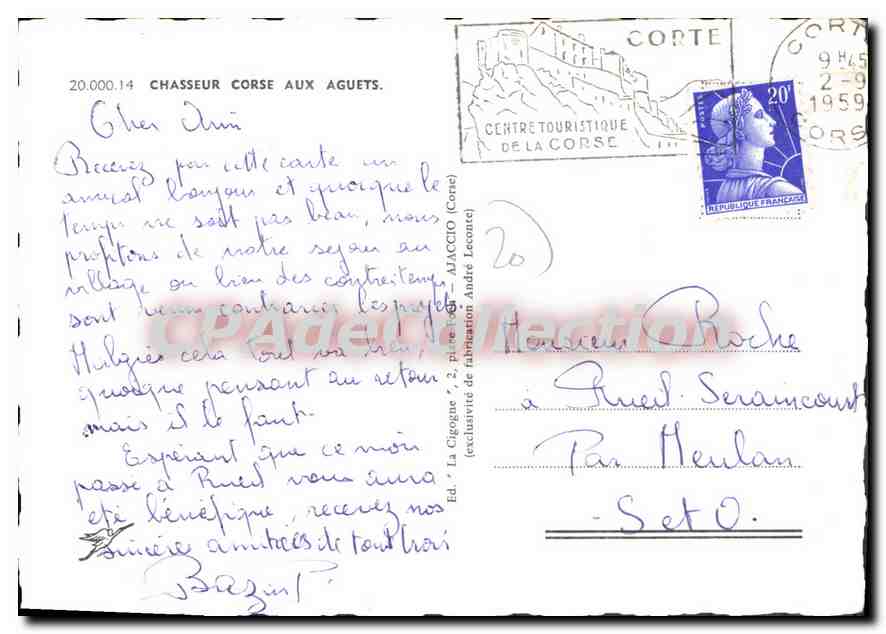 20.000.14 CHASSEUR CORSE AUX AGUETS.
Cher Ami
Recevez par cette carte un
amical bonjour et quoique le
temps ne soit pas beau, nous
profitons de notre sejour au
village ou bien des contretemps
sont venu contrarier les projets.
Malgrés cela tout va bien,
quoique pensant au retour
mais il le faut.
Espérant que ce mois
passé à Rueil vous aura
été bénéfique, recevez nos
sincères amitiés de tout trois
Ed. "La Cigogne", 2, place Foch - AJACCIO (Corse)
(exclusivité de fabrication André Leconte)
CORTE
CENTRE TOURISTIQUE
DE LA CORSE
CORTE
9 H 45
2-9
1959
CORS
POSTES
20F
REPUBLIQUE FRANÇAISE
20
Monsieur Roche
à Rueil. Seraincourt
Par Meulan
S et O.
CPAdeCollection